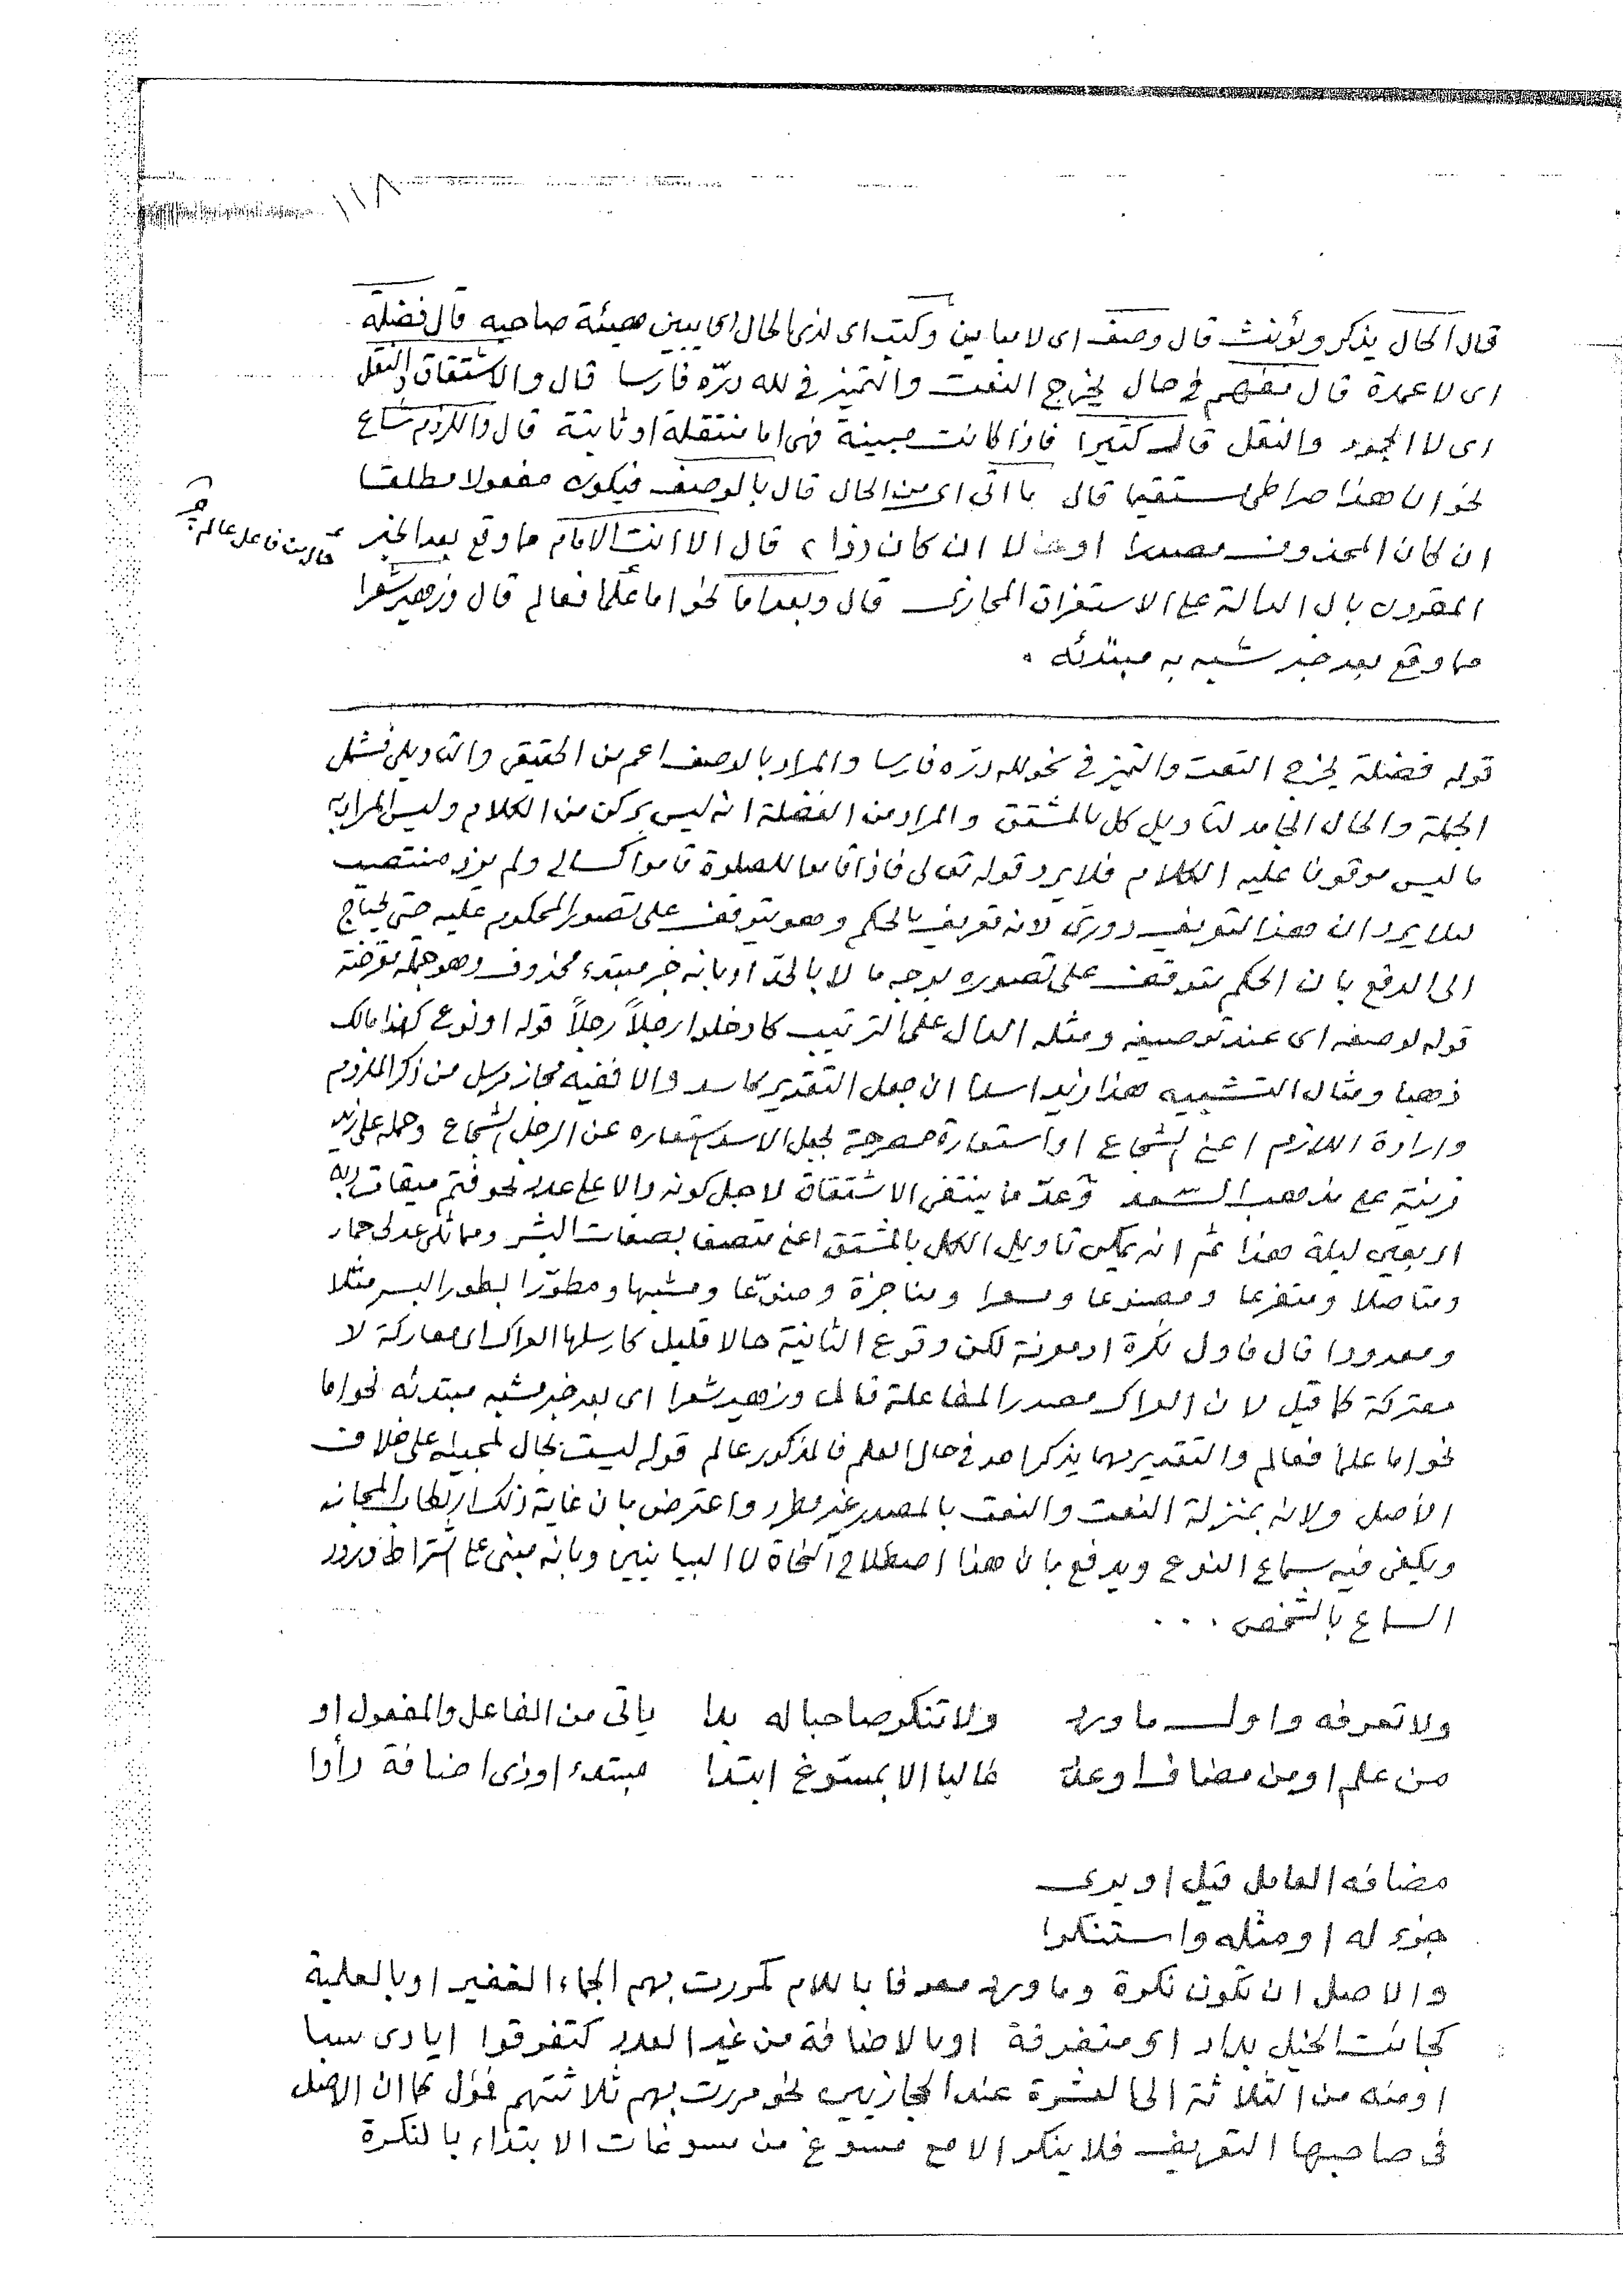 ١١٨
قال الحال يذكر ويؤنث قال وصف اى لا مباين وكتب اى لذى الحال اى يبين هيئة صاحبه قال فضلة
اى لا عمدة قال مفهم فى حال يخرج النعت والتميز فى لله درّه فارسا قال والاشتقاق والنقل
اى لا الجمود والنقل قال كثيرا فاذا كانت مبينة فهى اما منتقلة او ثابتة قال واللزوم شاع
نحو ان هذا صراطى مستقيما قال يا اتى اى من الحال قال بالوصف فيكون مفعولا مطلقا
ان كان المحذوف مصدرا او حالا ان كان ذا قال الا انت الامام مما وقع بعد الخبر
حال من فاعل عالم
المقرون بال الدالة على الاستغراق المجازى قال وبعد اما نحو اما علما فعالم قال وزهير شعرا
مما وقع بعد خبر شبه به مبتدئه .
قوله فضلة يخرج النعت والتميز فى نحو لله درّه فارسا والمراد بالوصف اعم من الحقيقى والتاويلى فشمل
الجملة والحال الجامد لتاويل كل بالمشتق والمراد من الفضلة انه ليس بركن من الكلام وليس المراد به
ما ليس موقوفا عليه الكلام فلا يرد قوله تعالى فاذا قاموا للصلوة قاموا كسالى ولم يزد منتصب
لئلا يرد ان هذا التعريف دورى لانه تعريف بالحكم وهو يتوقف على تصور المحكوم عليه حتى يحتاج
الى الدفع بان الحكم يتوقف على تصوره بوجه ما لا بالحدّ او بانه خبر مبتدء محذوف وهو جملة معترضة
قوله لوصفه اى عند توصيفه ومثله الدال على الترتيب كادخلوا رجلاً رجلاً قوله او نوع كهذا مالك
ذهبا ومثال التشبيه هذا زيد اسدا ان جعل التقدير كاسد والا ففيه مجاز مرسل من ذكر الملزوم
وارادة اللازم اعنى الشجاع او استعارة مصرحة بجعل الاسد استعارة عن الرجل الشجاع وحمله على زيد
قرينة على مذهب السعد وعدّ ما ينتفى الاشتقاق لاجل كونه دالا على عدد نحو فتم ميقات ربه
اربعين ليلة هذا ثم انه يمكن تاويل الكل بالمشتق اعنى متصف بصفات البشر ومماثلى عدلى حمار
ومتاصلا ومتفرعا ومصنوعا ومسعرا ومناجزة ومنوّعا ومشبها ومطوّرا بطور البسر مثلا
ومعدودا قال فاول نكرة او مؤنة لكن وقوع الثانية حالا قليل كارسلها العراك اى معاركة لا
معتركة كما قيل لان العراك مصدر المفاعلة قال وزهير شعرا اى بعد خبر مشبه مبتدئه نحو اما
نحو اما علما فعالم والتقدير مهما يذكر احد فى حال العلم فالمذكور عالم قوله ليست بحال لمجيئه على خلاف
الاصل ولانه بمنزلة النعت والنعت بالمصدر غير مطرد واعترض بان غاية ذلك ارتكاب المجاز
ويكفى فيه سماع النوع ويدفع بان هذا اصطلاح النحاة لا البيانيين وبانه مبنى على اشتراط ورود
السماع بالشخص ...
ولا تعرفه واول ما ورد ولا تنكر صاحبا له بدا ياتى من الفاعل والمفعول او
من علم او من مضاف او عدد غالبا الا بمسوّغ ابتدا مبتدء او ذى اضافة رأوا
مضافه العامل قيل او يرى
جزء له او مثله واستنكروا
والاصل ان تكون نكرة وما ورد معرفا باللام كمررت بهم الجماء الغفير او بالعلمية
كجائت الخيل بداد اى متفرقة او بالاضافة من غير العدد كتفرقوا ايادى سبا
او منه من الثلاثة الى العشرة عند الحجازيين نحو مررت بهم ثلاثتهم فؤل كما ان الاصل
فى صاحبها التعريف فلا ينكر الا مع مسوغ من مسوغات الابتداء بالنكرة